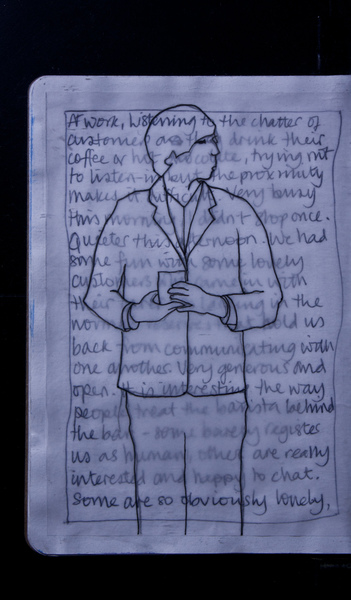 At work, listening to the chatter of
customers as they drink their
coffee or hot chocolate, trying not
to listen in but the proximity
makes it difficult. Very busy
this morning didn't stop once.
Quieter this afternoon. We had
some fun with some lovely
customers in with
their in the
hold us
back from communicating with
one another. Very generous and
open. It is interesting the way
people treat the barista behind
the bar - some barely register
us as human, others are really
interested and happy to chat.
Some are so obviously lonely,